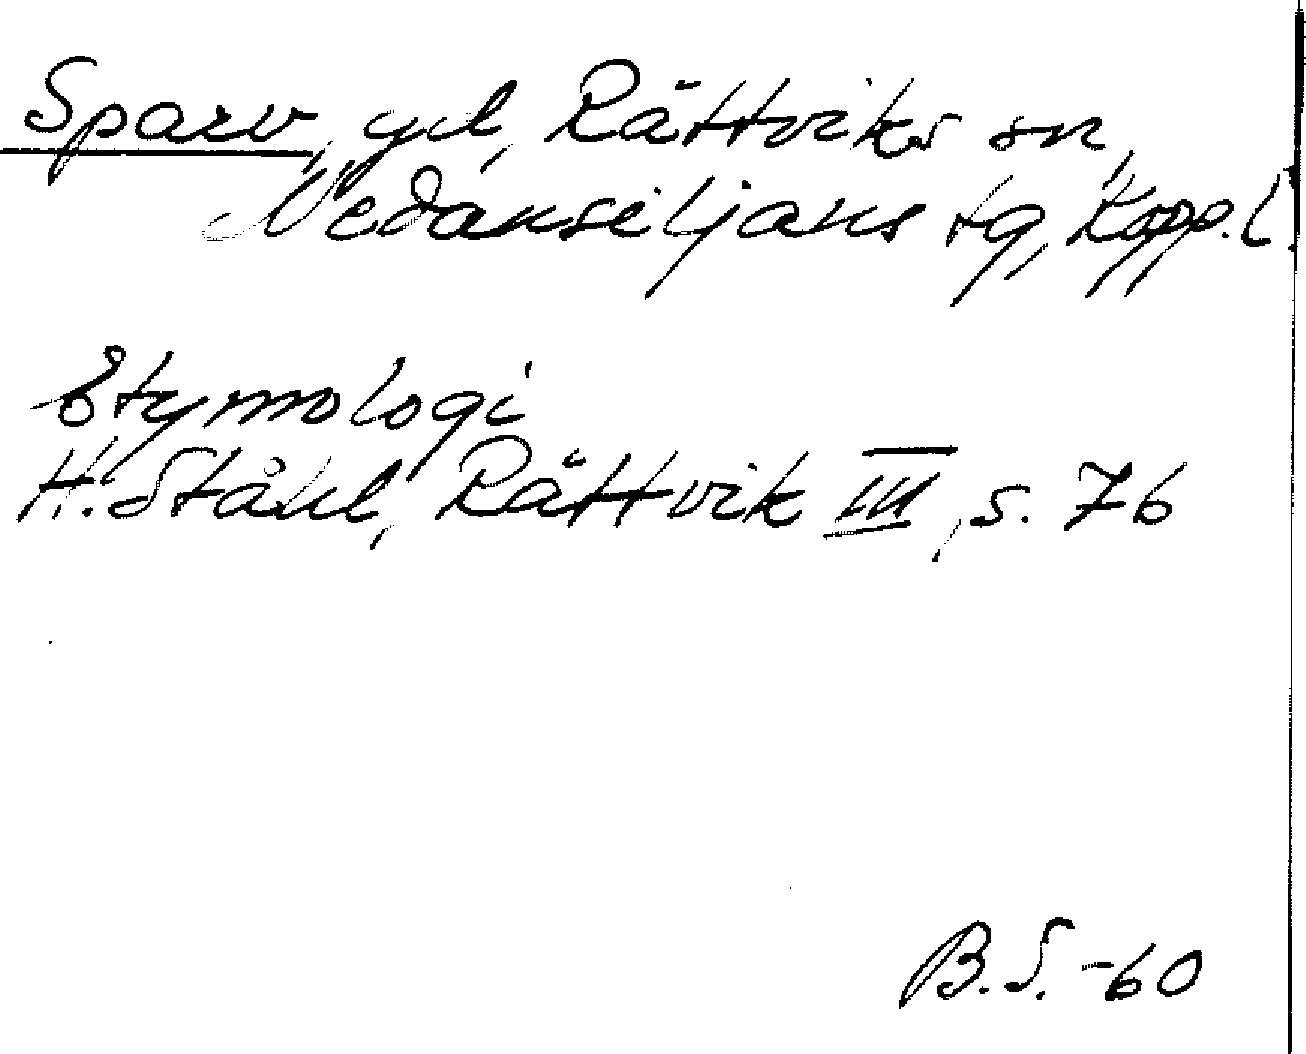 Sparv, gd, Rättviks sn,
Nedansiljans tg, Kopp.l.
Etymologi
H. Ståhl, Rättvik III, s. 76
B.S. -60